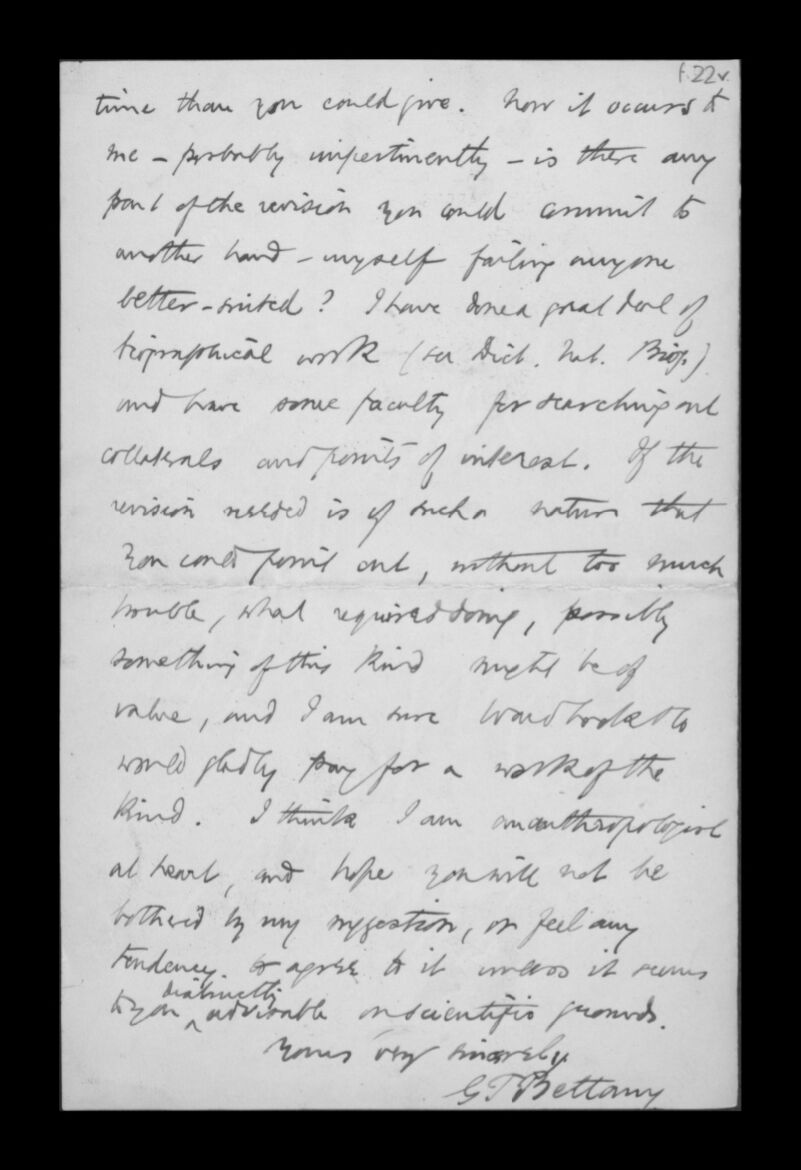 f.22v.
time than you could give. Now it occurs to
me – probably impertinently – is there any
part of the revision you could commit to
another hand – myself failing anyone
better-suited? I have done a great deal of
biographical work (see Dict. Nat. Biog.)
and have some faculty for searching out
collaterals and points of interest. If the
revision needed is of such a nature that
you could point out, without too much
trouble, what required doing, possibly
something of this kind might be of
value, and I am sure Ward Lock & Co
would gladly pay for a work of the
kind. I think I am an anthropologist
at heart, and hope you will not be
bothered by my suggestion, or feel any
tendency to agree to it unless it seems
to you distinctly advisable on scientific grounds.
Yours very sincerely
G T Bettany